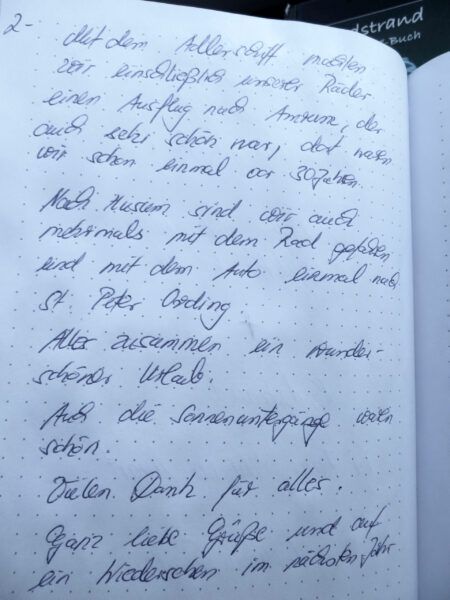 2-
Mit dem Adlerschiff machten
wir einschließlich unserer Räder
einen Ausflug nach Amrum, der
auch sehr schön war, dort waren
wir schon einmal vor 30 Jahren.
Nach Husum sind wir auch
mehrmals mit dem Rad gefahren
und mit dem Auto einmal nach
St. Peter Ording
Alles zusammen ein wunder-
schöner Urlaub.
Auch die Sonnenuntergänge waren
schön.
Vielen Dank für alles.
Ganz liebe Grüße und auf
ein Wiedersehen im nächsten Jahr
dstrand
-Buch